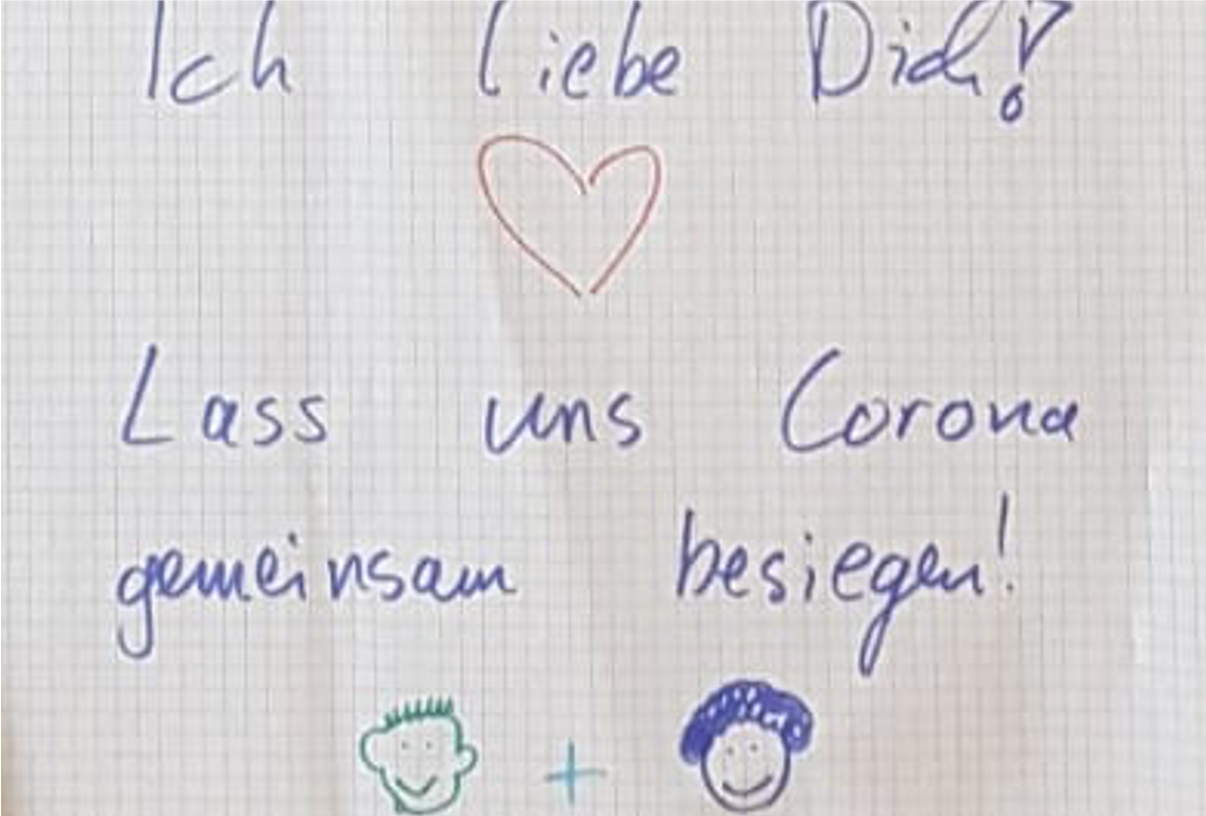 Ich liebe Dich!
Lass uns Corona
gemeinsam besiegen!
+